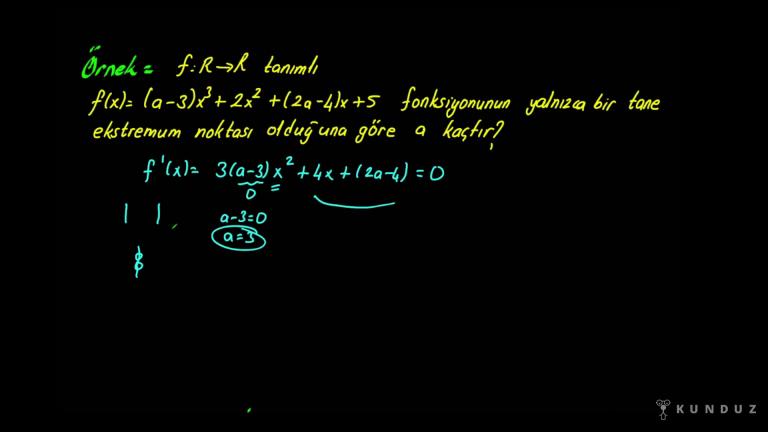 Örnek = f:R→R tanımlı
f(x)= (a-3)x³+2x²+(2a-4)x+5 fonksiyonunun yalnızca bir tane
ekstremum noktası olduğuna göre a kaçtır?
f'(x)= 3(a-3)x²+4x+(2a-4)=0
0
a-3=0
a=3
KUNDUZ